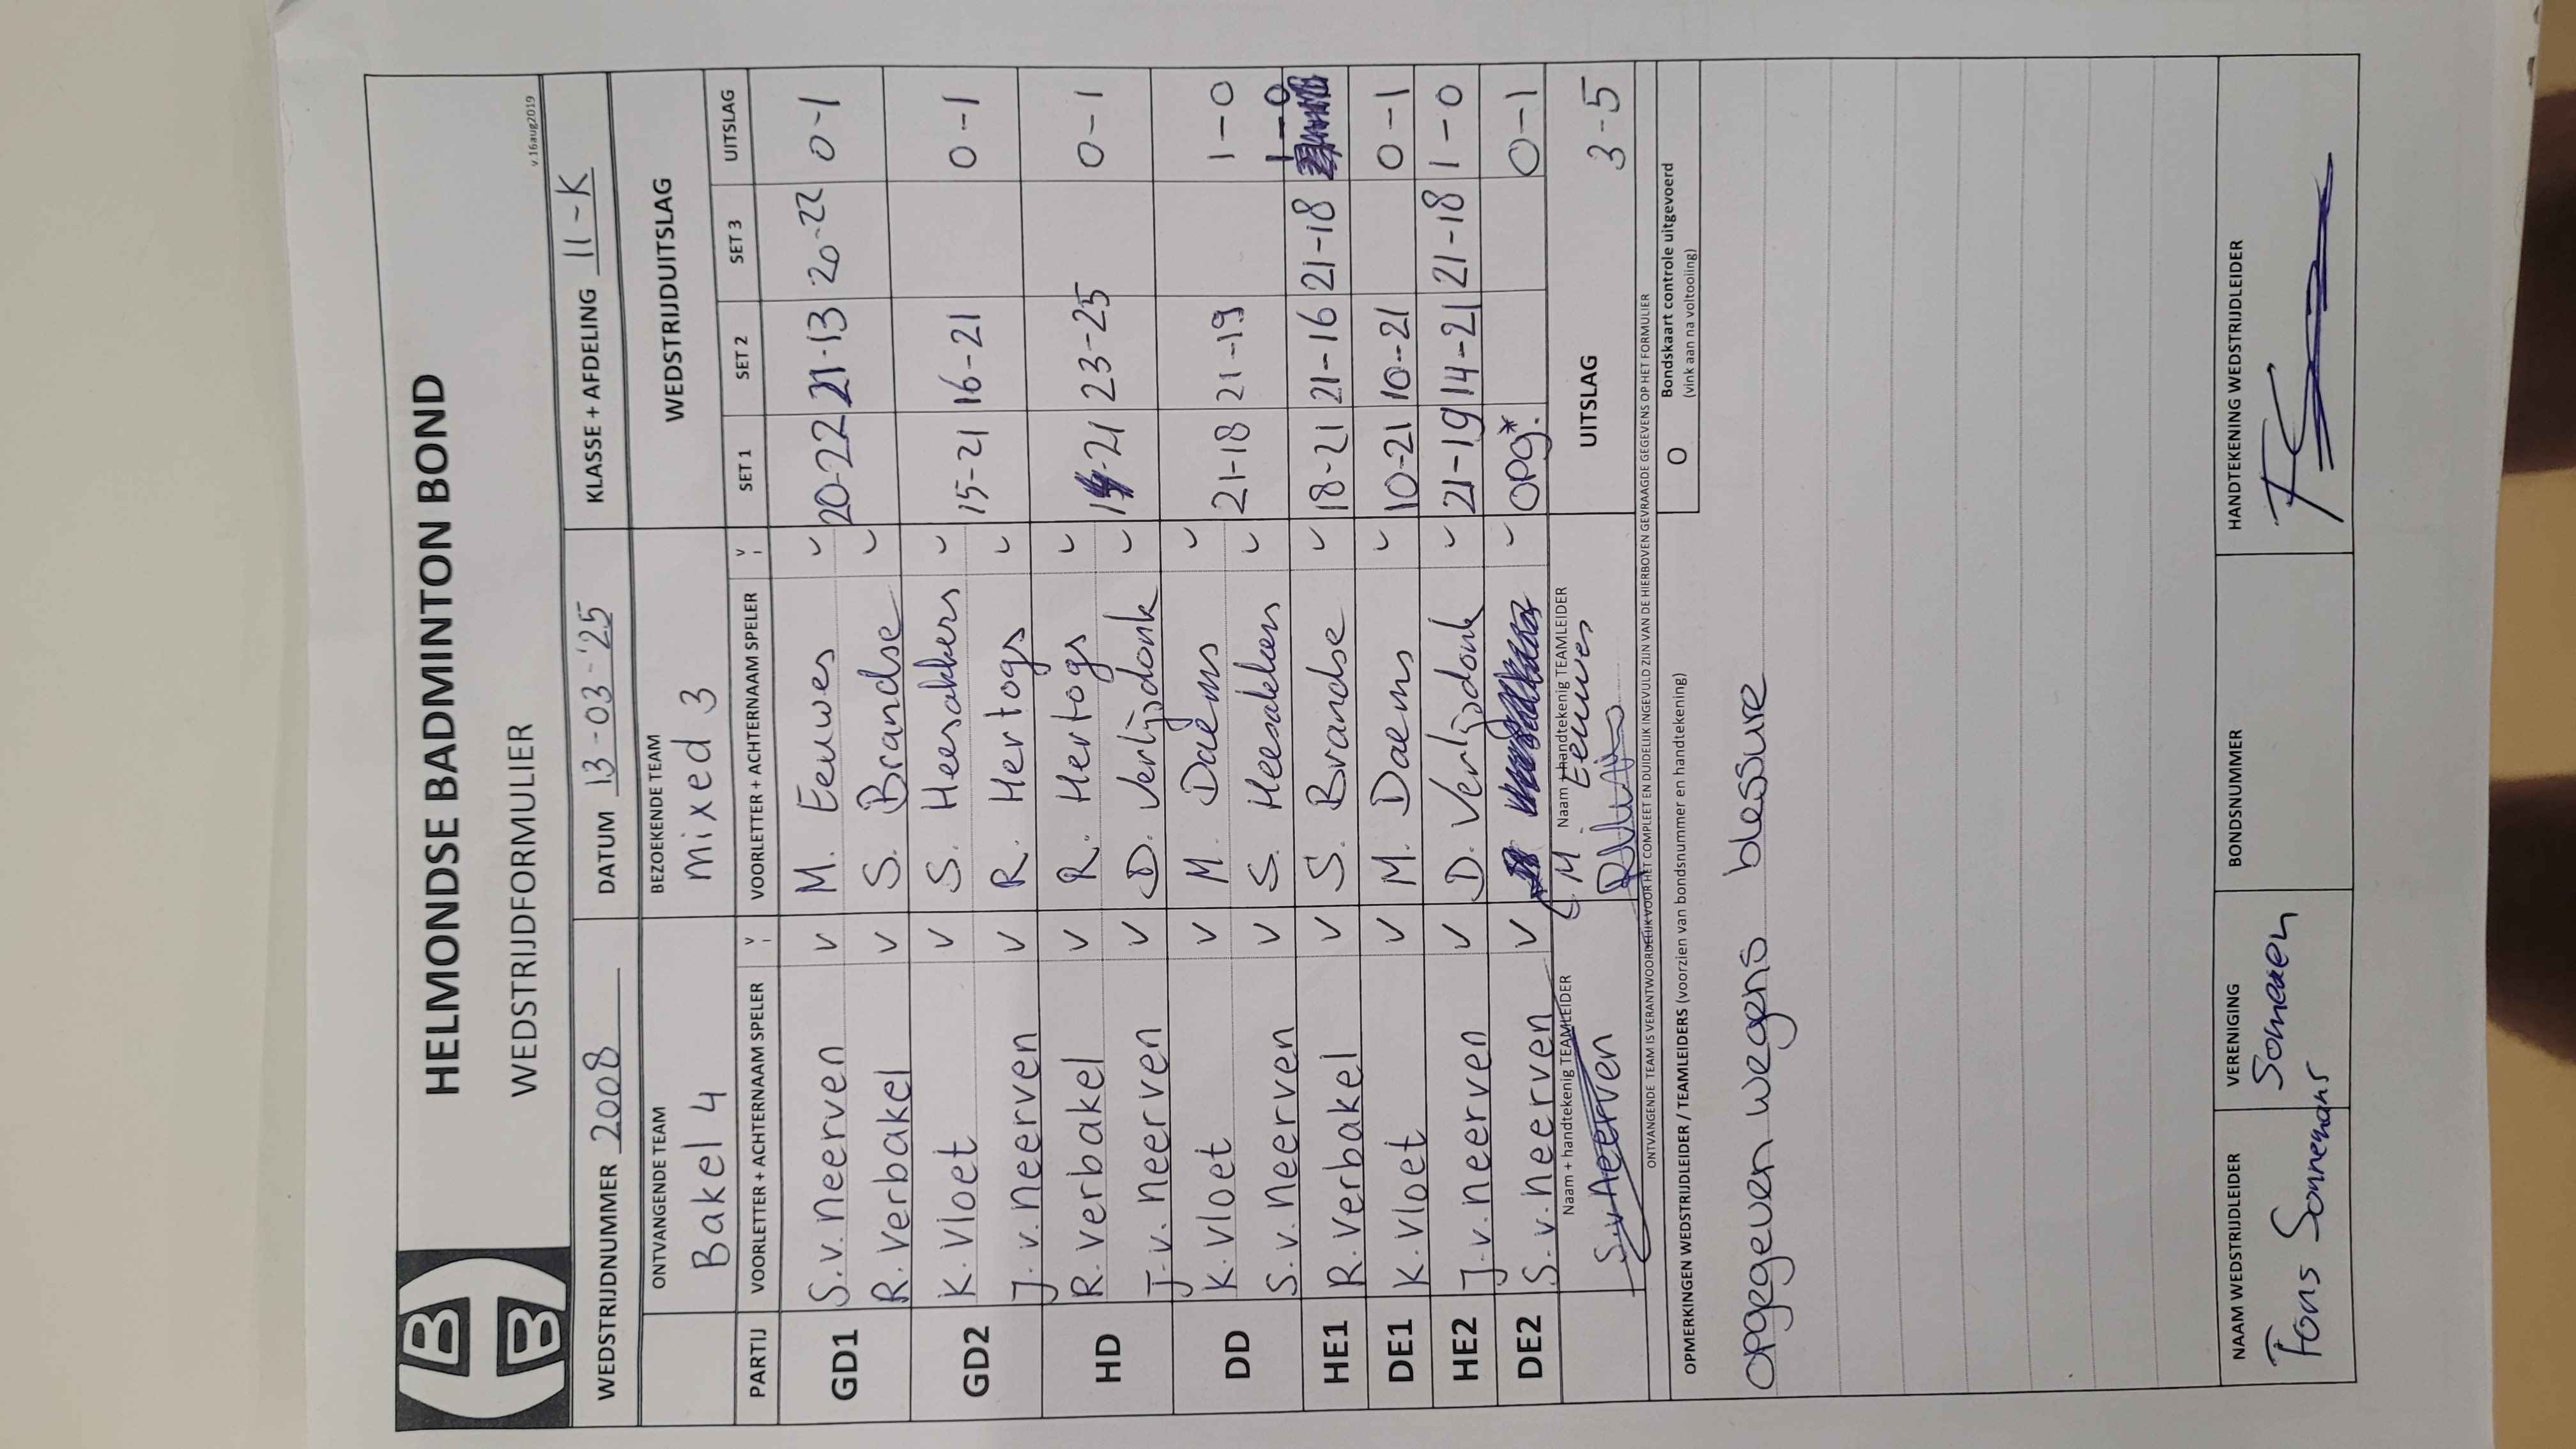 HELMONDSE BADMINTON BOND
WEDSTRIJDFORMULIER
v 16aug2019
WEDSTRIJDNUMMER 2008 DATUM 13-03-'25 KLASSE + AFDELING 11-K
ONTVANGENDE TEAM BEZOEKENDE TEAM WEDSTRIJDUITSLAG
Bakel 4 mixed 3
PARTIJ VOORLETTER + ACHTERNAAM SPELER v VOORLETTER + ACHTERNAAM SPELER v SET 1 SET 2 SET 3 UITSLAG
GD1 S.v.neerven v M. Eeuwes v 20-22 21-13 20-22 0-1
R.verbakel v S. Brandse v
GD2 K.vloet v S. Heesakkers v 15-21 16-21 0-1
J.v.neerven v R. Hertogs v
HD R.verbakel v R. Hertogs v -21 23-25 0-1
J.v.neerven v D. Verlijsdonk v
DD K.vloet v M. Daems v 21-18 21-19 1-0
S.v.neerven v S. Heesakkers v
HE1 R.verbakel v S. Brandse v 18-21 21-16 21-18 1-0
DE1 K.vloet v M. Daems v 10-21 10-21 0-1
HE2 J.v.neerven v D. Verlijsdonk v 21-19 14-21 21-18 1-0
DE2 S.v.neerven v v opg.* 0-1
Naam + handtekenig TEAMLEIDER Naam + handtekenig TEAMLEIDER UITSLAG 3-5
S.v.neerven M. Eeuwes
ONTVANGENDE TEAM IS VERANTWOORDELIJK VOOR HET COMPLEET EN DUIDELIJK INGEVULD ZIJN VAN DE HIERBOVEN GEVRAAGDE GEGEVENS OP HET FORMULIER
OPMERKINGEN WEDSTRIJDLEIDER / TEAMLEIDERS (voorzien van bondsnummer en handtekening) O Bondskaart controle uitgevoerd
(vink aan na voltooiing)
opgegeven wegens blessure
NAAM WEDSTRIJDLEIDER VERENIGING BONDSNUMMER HANDTEKENING WEDSTRIJDLEIDER
Fons Sonnemans Someren